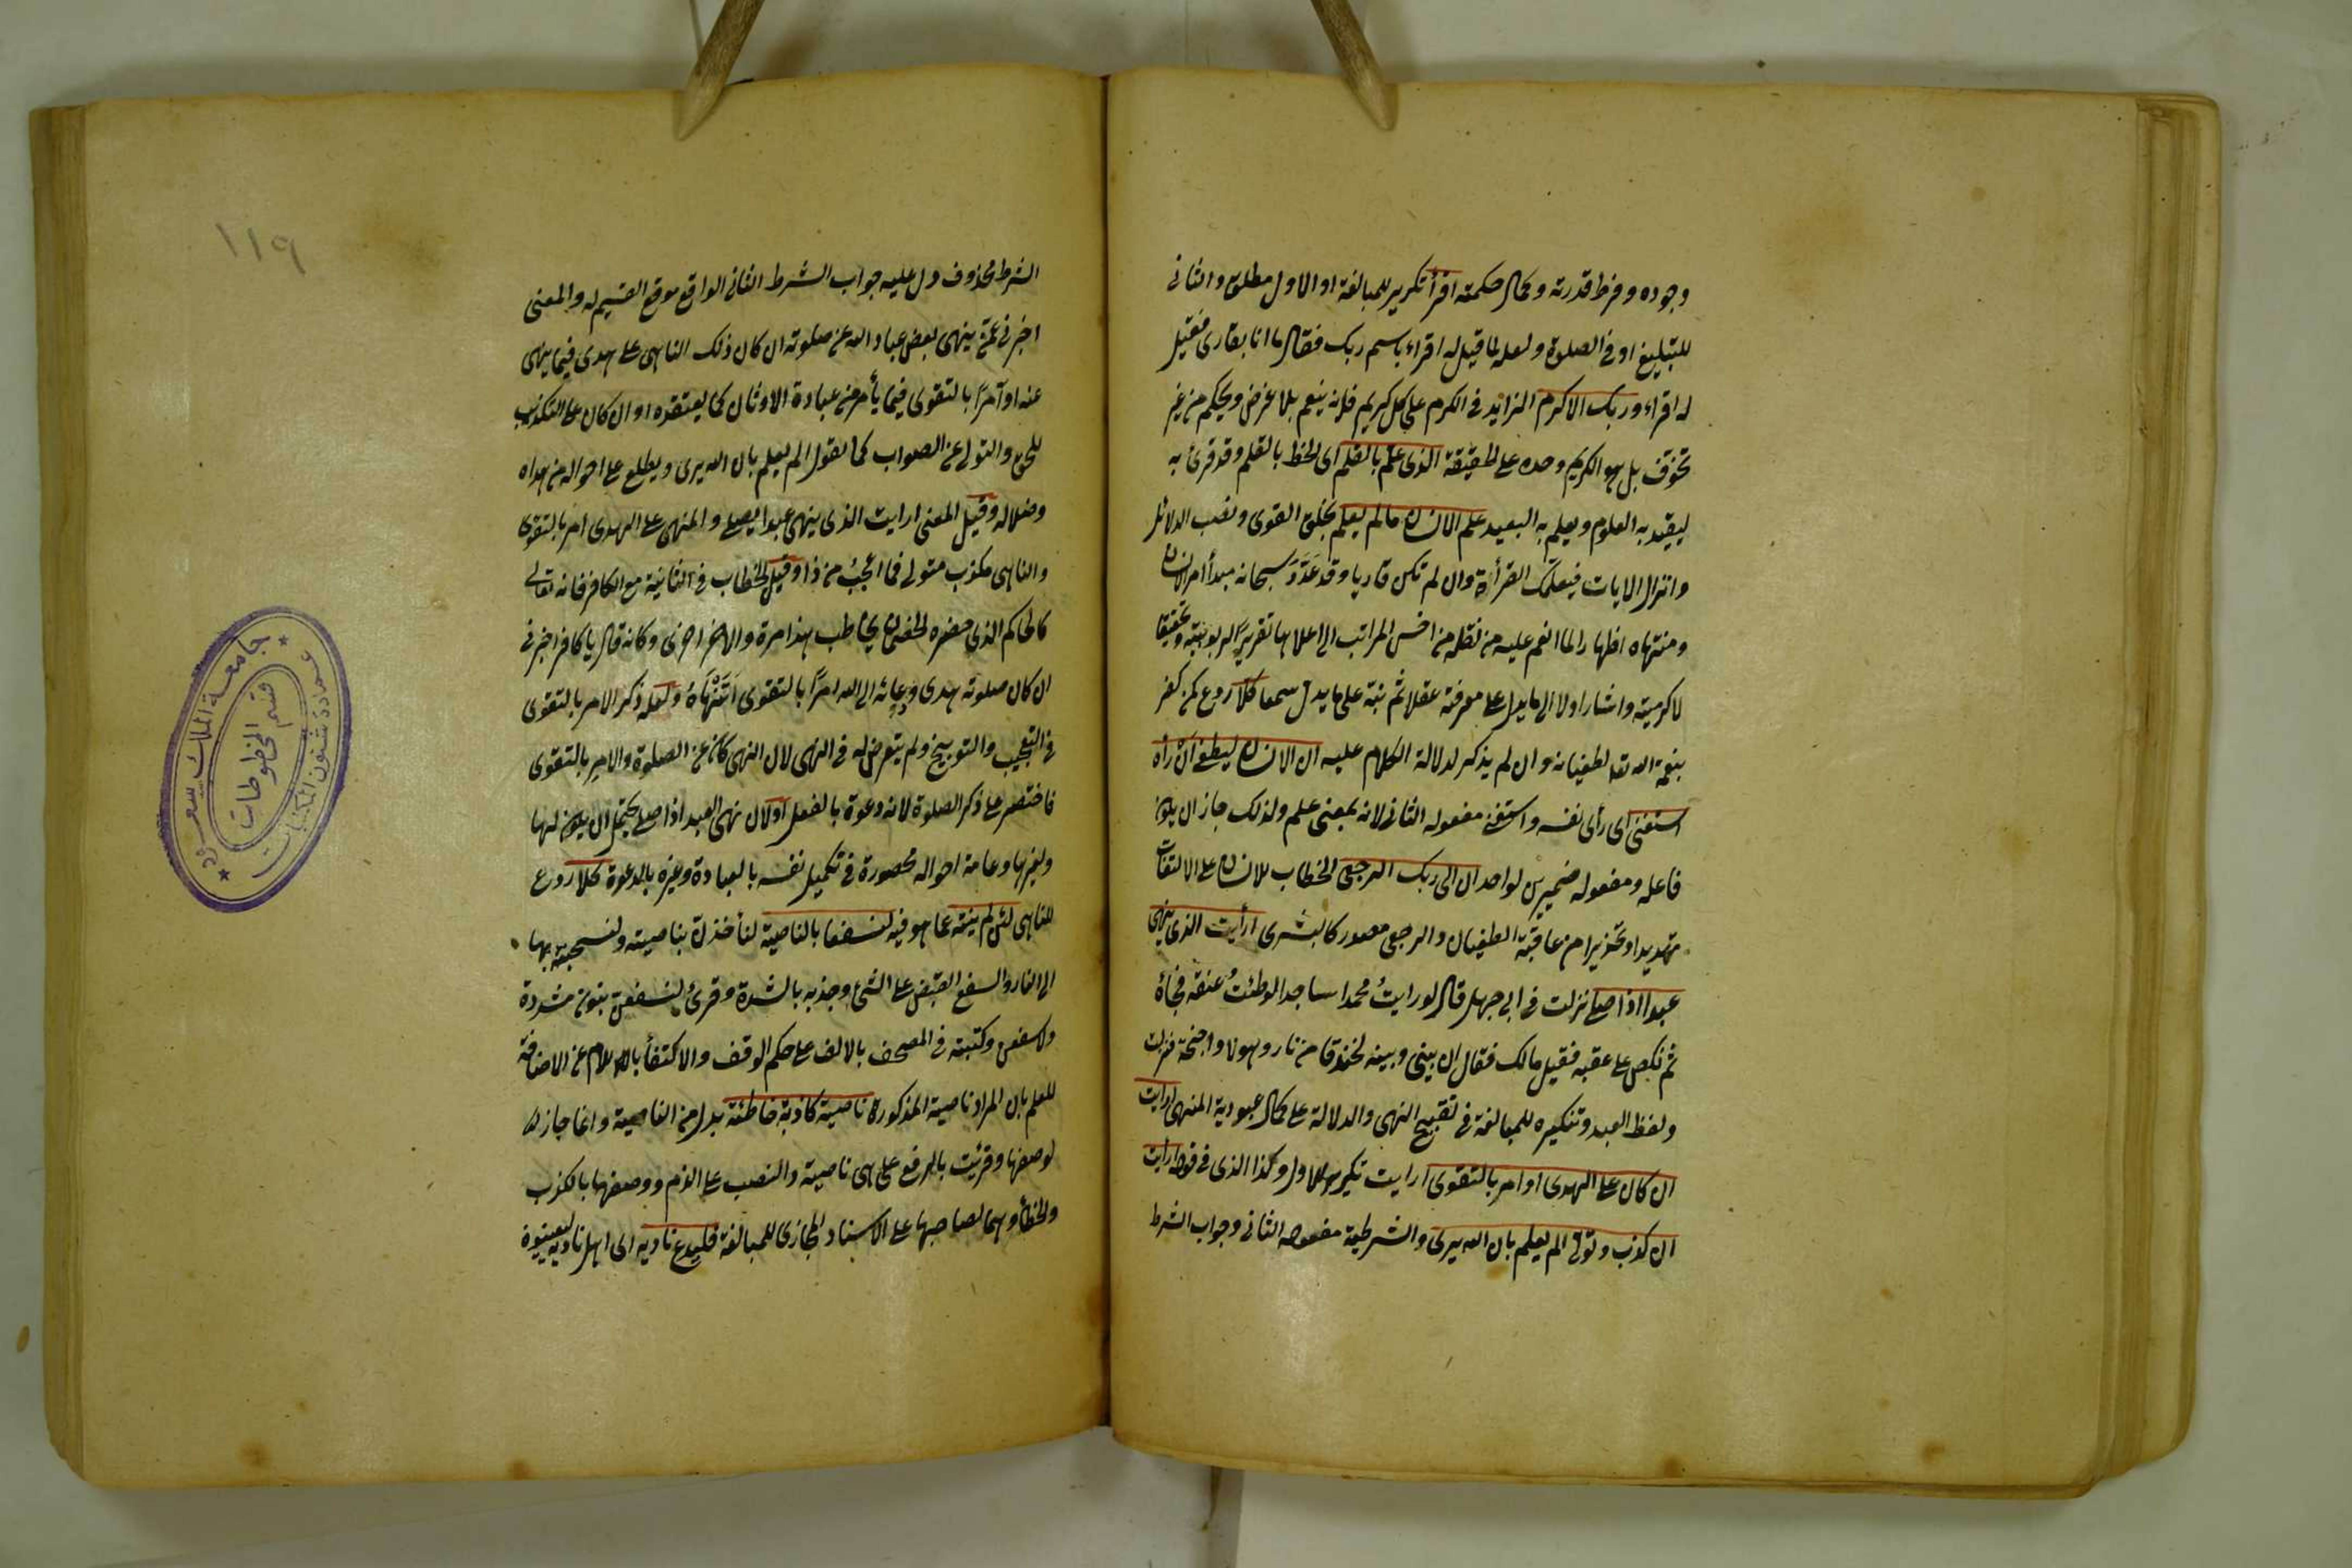 وجوده وفرط قدرته وكمال حكمته اقرأ تكرير للمبالغة او الاول مطلق والثانى
للتبليغ او فى الصلوة ولعله لما قيل له اقراء باسم ربك فقال ما انا بقارى فقيل
له اقراء وربك الاكرم الزايد فى الكرم على كل كريم فانه ينعم بلا غرض ويحكم من غير
تخوف بل هو الكريم وحده على الحقيقة الذى علم بالقلم اى الخط بالقلم وقد قرئ به
ليقيد به العلوم ويعلم به البعيد علم الانسان ما لم يعلم بخلق القوى ونصب الدلائل
وانزال الايات فيعلمك القرأة وان لم تكن قاريا وقد عدد سبحانه مبدأ امر الانسان
ومنتهاه اظهارا لما انعم عليه من نقله من اخس المراتب الى اعلاها تقريرًا لربوبيته وتحقيقا
لاكرميته واشار اولا الى ما يدل على معرفته عقلا ثم نبه على ما يدل سمعا كلا ردع لمن كفر
بنعمة الله تعا لطغيانه وان لم يذكر لدلالة الكلام عليه ان الانسان ليطغى ان رأه
استغنى اى رأى نفسه واستغنى مفعوله الثانى لانه بمعنى علم ولذلك جاز ان يكون
فاعله ومفعوله ضميرين لواحد ان الى ربك الرجعى الخطاب للانسان على الالتفات
تهديدا وتحذيرا من عاقبة الطغيان والرجعى مصدر كالبشرى ارأيت الذى ينهى
عبدا اذا صلى نزلت فى ابى جهل قال لو رايتُ محمدا ساجدا لوطئتُ عنقه فجأه
ثم نكص على عقبه فقيل مالك فقال ان بينى وبينه لخندقا من نار وهولا واجنحة فنزلت
ولفظ العبد وتنكيره للمبالغة فى تقبيح النهى والدلالة على كمال عبودية المنهى ارايت
ان كان على الهدى او امر بالتقوى ارايت تكرير للاول وكذا الذى فى قوله ارايت
ان كذب وتولى الم يعلم بان الله يرى والشرطية مفعوله الثانى وجواب الشرط
١١٩
الشرط محذوف دل عليه جواب الشرط الثانى الواقع موقع القسيم له والمعنى
اخبرنى عمن ينهى بعض عباد الله عن صلوته ان كان ذلك الناهى على هدى فيما ينهى
عنه او آمرًا بالتقوى فيما يأمر من عبادة الاوثان كما يعتقده او ان كان على التكذيب
للحق والتولى عن الصواب كما نقول الم يعلم بان الله يرى ويطلع على احواله من هداه
وضلاله وقيل المعنى ارايت الذى ينهى عبدا يصلى والمنهى على الهدى امر بالتقوى
والناهى مكذب متولى فما اعجبُ من ذا وقيل الخطاب فى الثانية مع الكافر فانه تعالى
كالحاكم الذى حضره الخصمان يخاطب هذا مرة والاخر اخرى وكانه قال يا كافر اخبرنى
ان كان صلوته هدى ودعائه الى الله امرًا بالتقوى اَتَنْهَاهُ ولعله ذكر الامر بالتقوى
فى التعجيب والتوبيخ ولم يتعرض له فى النهى لان النهى كان عن الصلوة والامر بالتقوى
فاختصر على ذكر الصلوة لانه دعوة بالفعل او لان نهى العبد اذا صلى يحتمل ان يكون لها
ولغيرها وعامة احواله محصورة فى تكميل نفسه بالعبادة وغيره بالدعوة كلا ردع
للناهى لئن لم ينته عما هو فيه لنسفعا بالناصية لنأخذن بناصيته ولنسحبنه بها
الى النار والسفع القبض على الشئ وجذبه بالشدة وقرئ لنسفعن بنون مشددة
ولاسفعن وكتبته فى المصحف بالالف على حكم الوقف والاكتفأ باللام عن الاضافة
للعلم بان المراد ناصية المذكور ناصية كاذبة خاطئة بدل من الناصية وانما جاز
لوصفها وقرئت بالرفع على هى ناصية والنصب على الذم ووصفها بالكذب
والخطأ وهما لصاحبها على الاسناد المجازى للمبالغة فليدع ناديه اى اهل ناديه ليعينوه
جامعة الملك سعود
عمادة شئون المكتبات
قسم المخطوطات